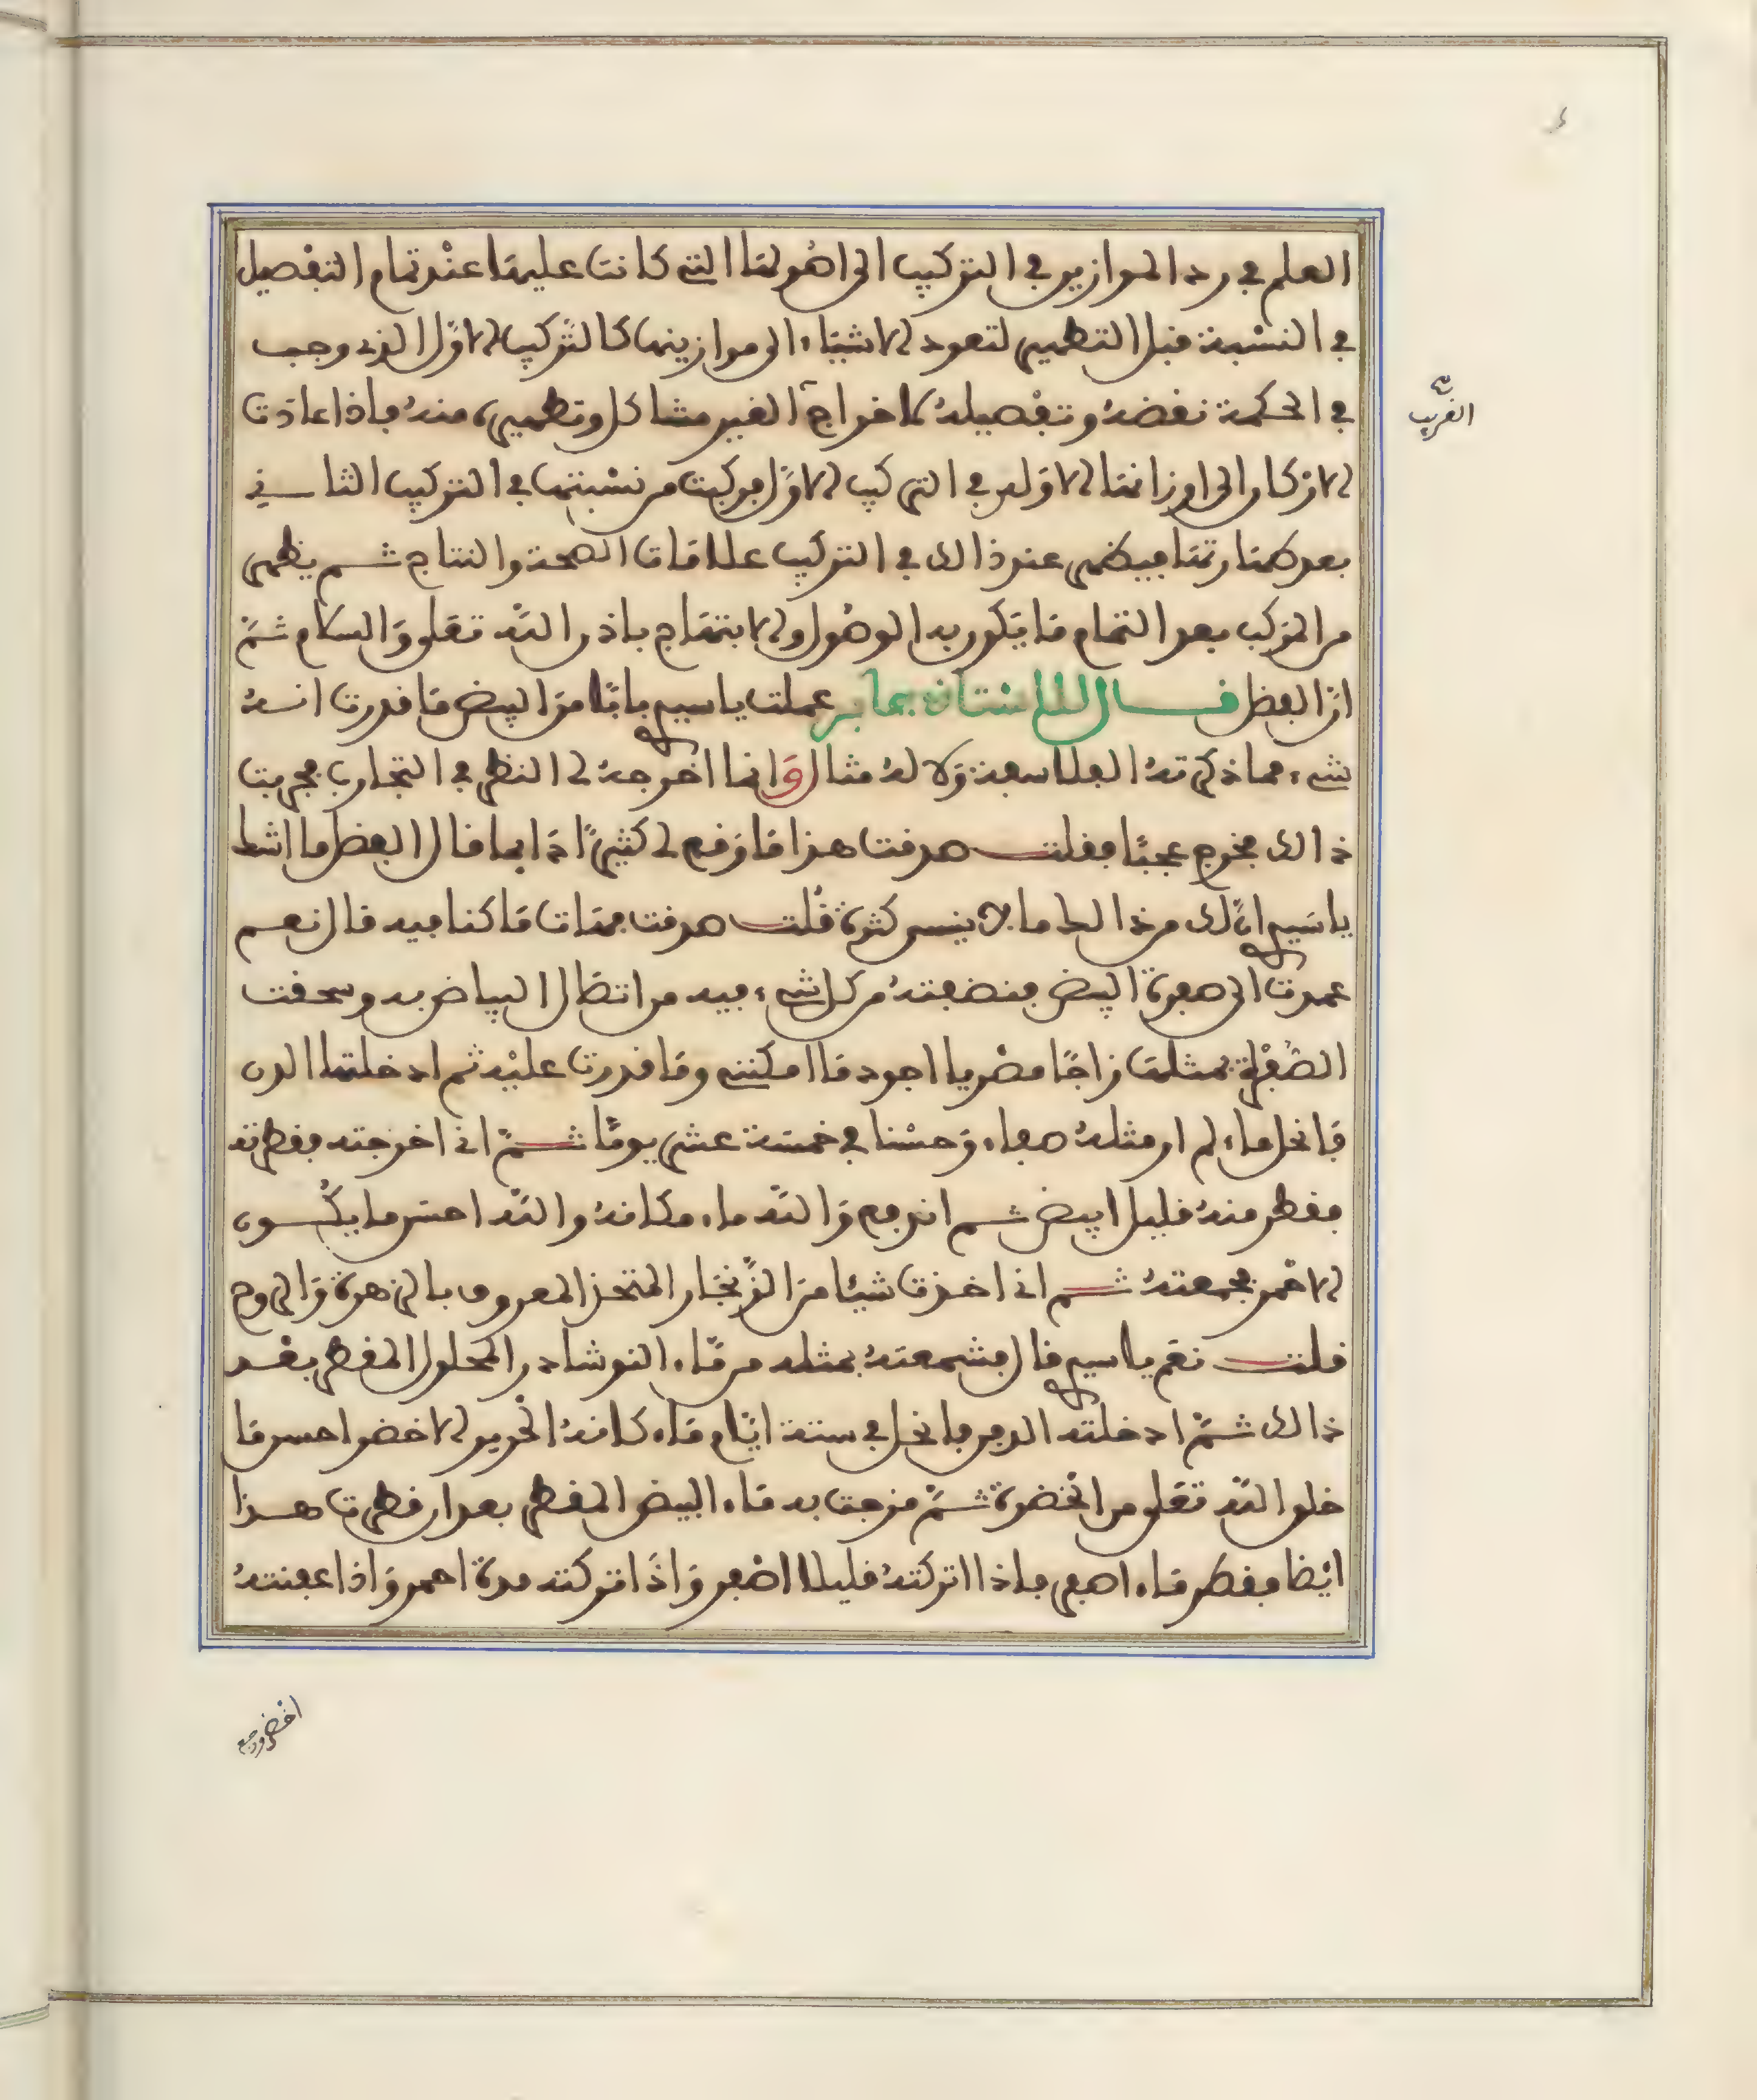 العلم في رد الموازين في التركيب الى اصولها التي كانت عليها عند تمام التفصيل
في النسبة قبل التطهير لتعود الاشياء الى موازينها كالتركيب الاول الذي وجب
في الحكمة نقضه وتفصيله لاخراج الغير مشاكل وتطهيره منه فاذا عادت
الاركان الى اوزانها الاولى في التركيب الاول بوركبت من نسبتها في التركيب الثاني
بعد طهارتها فيظهر عند ذالك في التركيب علامات الصحة والنتاج ثم يظهر
من المركب بعد التمام ما يكون به الوصول والابتهاج باذن الله تعلى والسلام ثم
ان الفضل قال للاستاذ جابر عملت يا سيدي بابا من البيض ما قدرت انه
شيء مما ذكرته الفلاسفة ولا له مثال وانما اخرجه لي النظر في التجارب فجربت
ذالك فخرج عجبا فقلت صدقت هذا ما وقع لي كثيرا دايما قال الفضل ما اشك
يا سيدي ان لك من ذالك ما لا ينسى كثرة قلت صدقت فهات ما كنا فيه قال نعم
عمدت الى صفرة البيض فنضفته من كل شيء فيه من اتصال البياض به وسحقت
الصفرة بمثلها زاجا مصريا اجود ما امكنني وما قدرت عليه ثم ادخلتها الدن
فانحل ماء لم ار مثله صفاء وحسنا في خمسة عشر يوما ثم اني اخرجته فقطرته
فقطر منه قليل ابيض ثم اندفع والله ماء مكانه والله احسن ما يكون
الاحمر فجمعته ثم اني اخذت شيئا من الزنجار المتخذ المعروف بالزهرة والروح
قلت نعم يا سيدي قال فشمعته بمثله من ماء النوشادر المحلول المقطر بعد
ذالك ثم ادخلته الدفن فانحل في ستة ايام ماء كانه الحرير الاخضر احسن ما
خلق الله تعلى من الخضرة ثم مزجت به ماء البيض المقطر بعد ان قطرت هذا
ايضا فقطر ماء اصفر فاذا اتركته قليلا اصفر واذا تركته مدة احمر واذا عفنته
الغريب
اخضر ومع